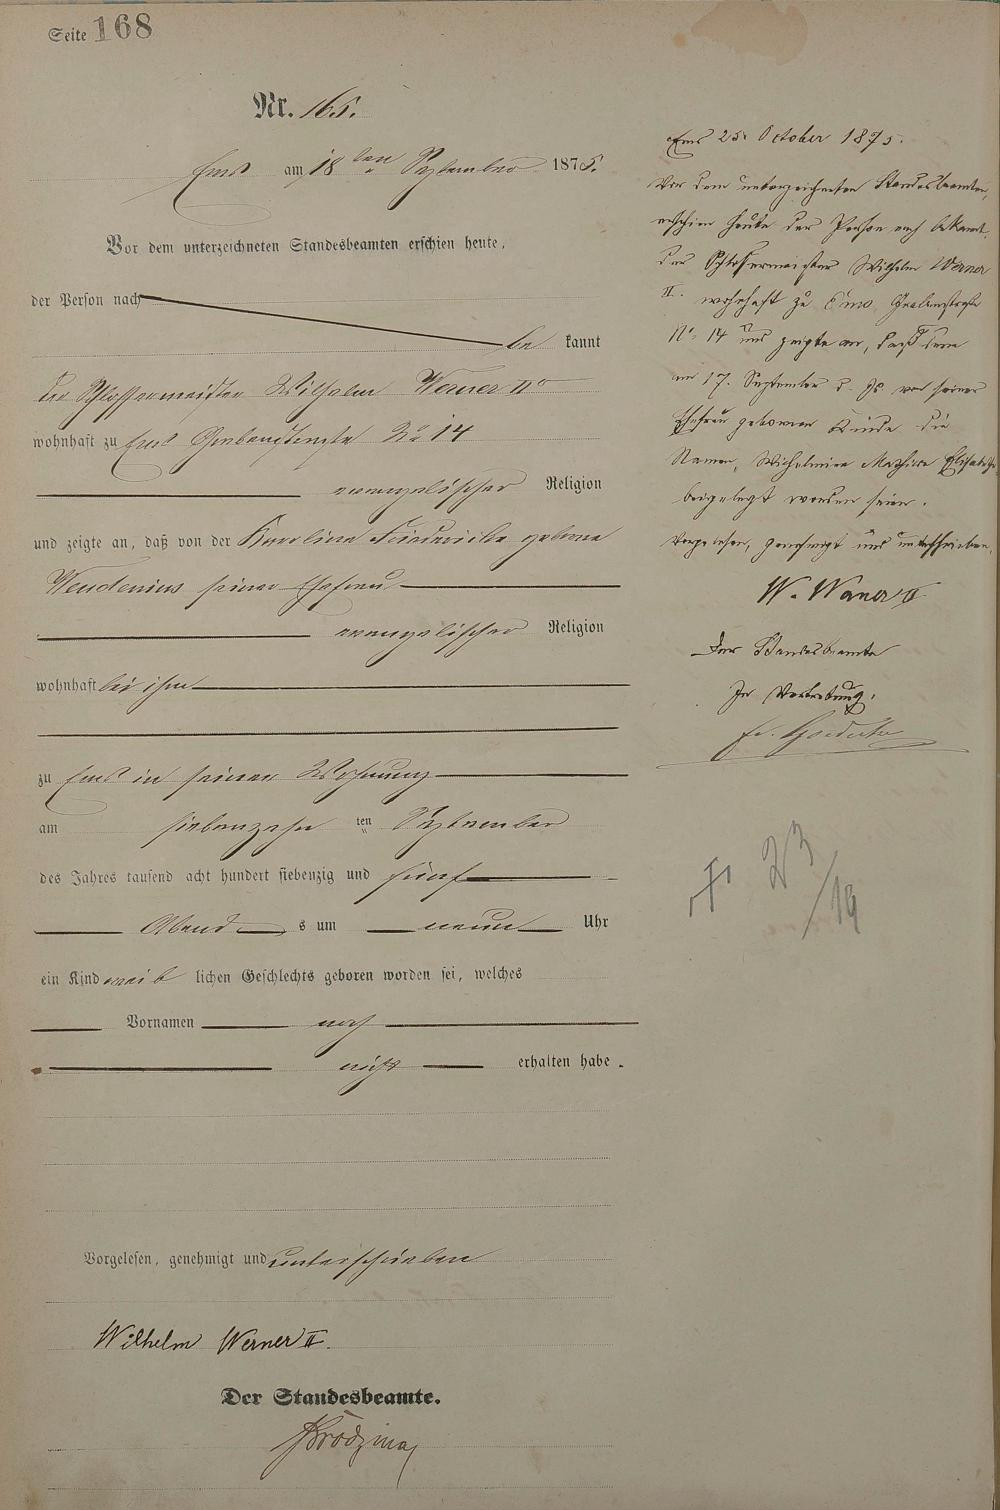 Seite 168
Nr. 165.
Ems am 18 ten September 1875.
Vor dem unterzeichneten Standesbeamten erschien heute,
der Person nach
be kannt
der Schlossermeister Wilhelm Werner II
wohnhaft zu Ems Grabenstraße No 14
evangelischer Religion
und zeigte an, daß von der Karoline Friederike geborne
Wendenius seiner Ehefrau
evangelischer Religion
wohnhaft bei ihm
zu Ems in seiner Wohnung
am siebenzehn ten September
des Jahres tausend acht hundert siebenzig und fünf
Abend s um neun Uhr
ein Kind weib lichen Geschlechts geboren worden sei, welches
Vornamen noch
nicht erhalten habe.
Vorgelesen, genehmigt und unterschrieben
Wilhelm Werner II.
Der Standesbeamte.
Ems 25. October 1875.
Vor dem unterzeichneten Standesbeamten,
erschien heute der Person nach bekannt,
der Schlossermeister Wilhelm Werner
II. wohnhaft zu Ems, Grabenstraße
No 14 und zeigte an, daß dem
am 17. September d. Js. von seiner
Ehefrau geborenen Kinde die
Namen, Wilhelmine Mathilde Elisabethe
beigelegt worden seien.
Vorgelesen, genehmigt und unterschrieben.
W. Werner II
Der Standesbeamte
In Vertretung.
23/19